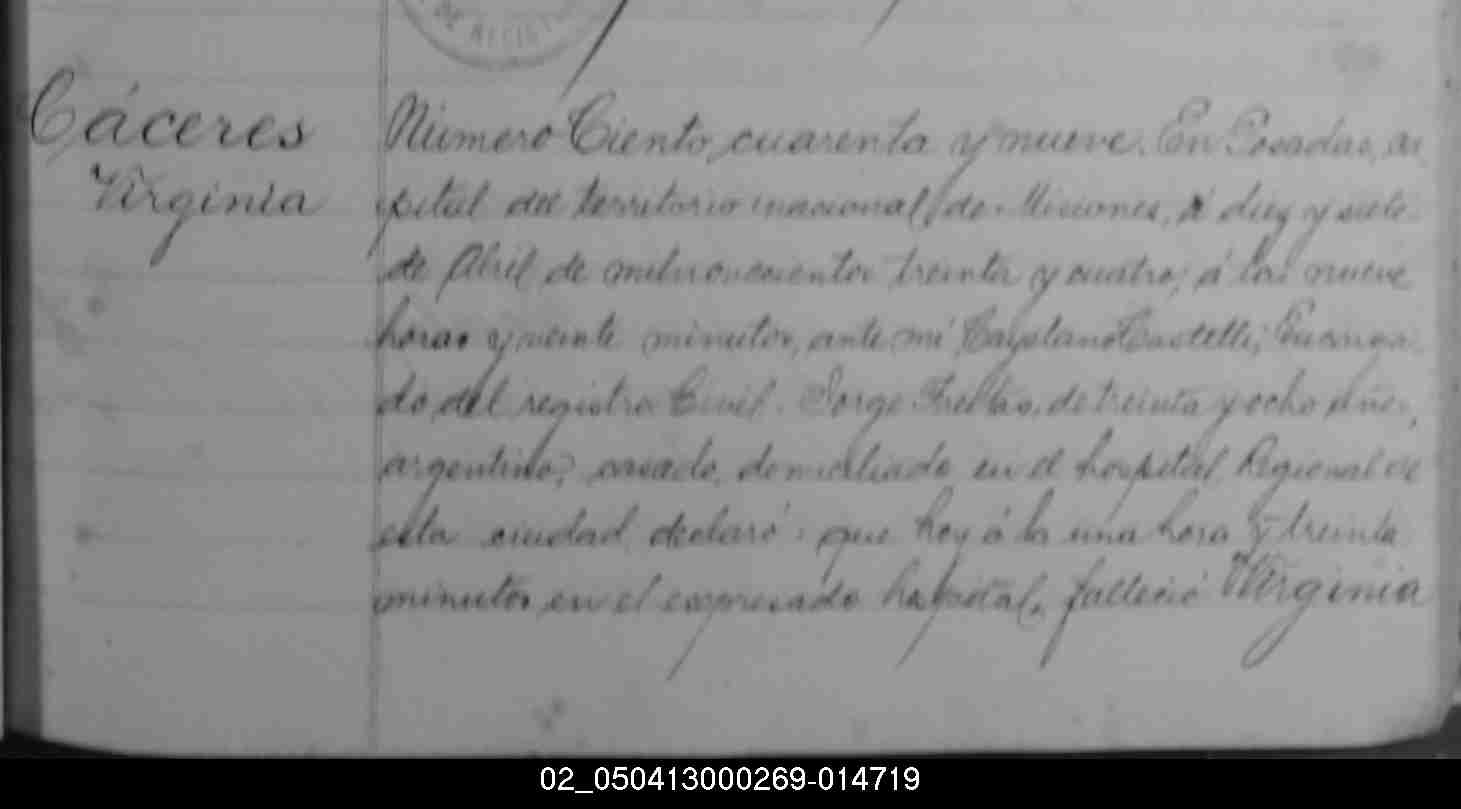 DE REGIST
Cáceres
Virginia
Número Ciento cuarenta y nueve. En Posadas, ca
pital del territorio nacional de Misiones, á diez y siete
de Abril de mil novecientos treinta y cuatro, á las nueve
horas y veinte minutos, ante mí Cayetano Castelli, Encarga
do del registro Civil. Jorge Freitas, de treinta y ocho años,
argentino, casado, domiciliado en el hospital Regional de
esta ciudad declaró: que hoy á la una hora y treinta
minutos en el expresado hospital, falleció Virginia
02_050413000269-014719